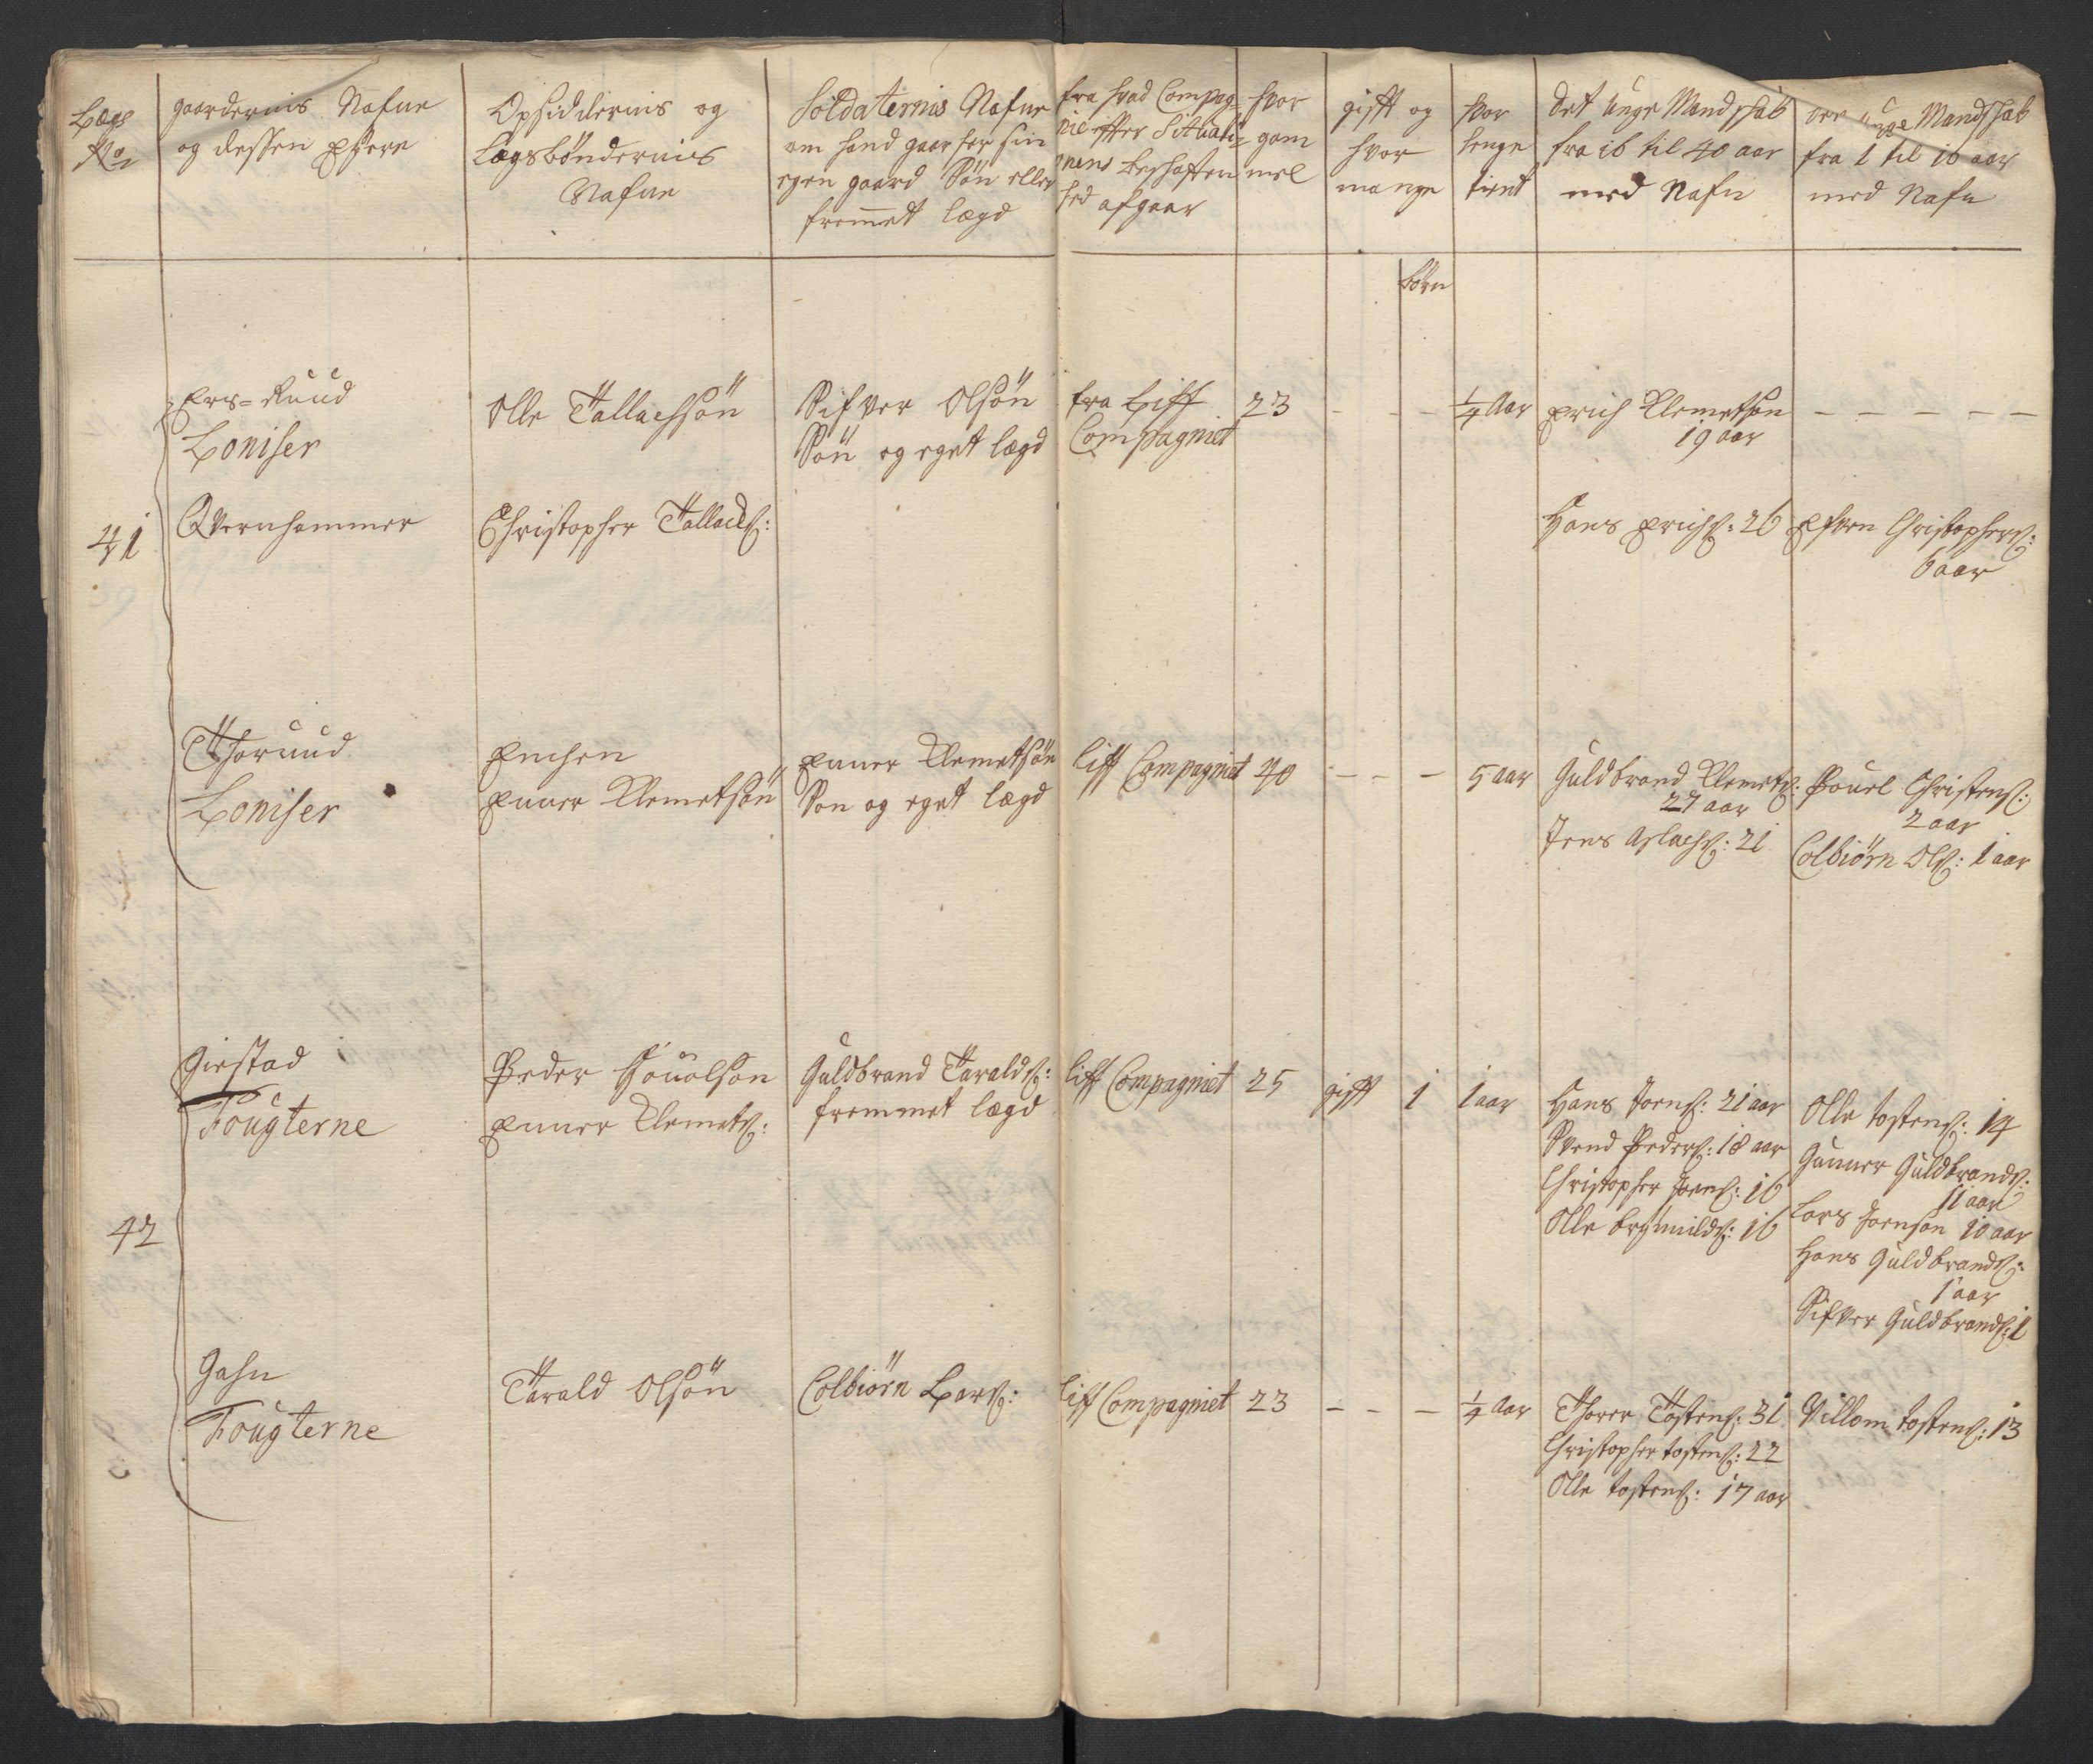 Lægs
No
gaardernis Nafne
og dessen Eyere
Opsiddernis og
Lægsbøndernis
Nafne
Soldaternis Nafne
om hand gaar for sin
egen gaard Søn eller
fremmet lægd
fra hvad Compag-
nie effter Situati-
onens beshaffen
hed afgaar
hvor
gam
mel
gifft og
hvor
mange
hvor
lenge
tient
Det unge Mandshab
fra 16 til 40 aar
med Nafn
unge Mandshab
fra 1 til 16 aar
med Nafn
børn
41
Ers=Ruud
Loniser
Olle Tallachsøn
Sifver Olsøn
Søn og eget lægd
fra Liff
Compagniet
23 - - - 1/4 Aar
Erich Klemetsøn
19 aar
- - - - -
Qvernhammer
Christopher Tallachs:
Hans Erichs: 26
Efven Christophers:
6 aar
Thoruud
Loniser
Enchen
Enner Klemetsøn
Enner Klemetsøn
Søn og eget lægd
liff Compagniet 40 - - - 5 aar
Guldbrand Klemets:
27 aar
Jens Aslachs: 21
Pouel Christens:
2 aar
Colbiørn Ols: 1 aar
42
Giestad
Fougterne
Peder Houelsøn
Enner Klemets:
Guldbrand Taralds:
fremmet lægd
liff Compagniet 25 gifft 1 1 aar
Hans Joens: 21 aar
Svend Peders: 18 aar
Christopher Joens: 16
Olle brymilds: 16
Olle tostens: 14
Gunner Guldbrands:
11 aar
Lars Joensøn 10 aar
Hans Guldbrands:
1 aar
Sifver Guldbrands: 1
Gahn
Fougterne
Tarald Olsøn
Colbiørn Lars:
liff Compagniet 23 - - - 1/4 Aar
Thorer Tostens: 31
Christopher tostens: 22
Olle tostens: 17 aar
Villom tostens: 13